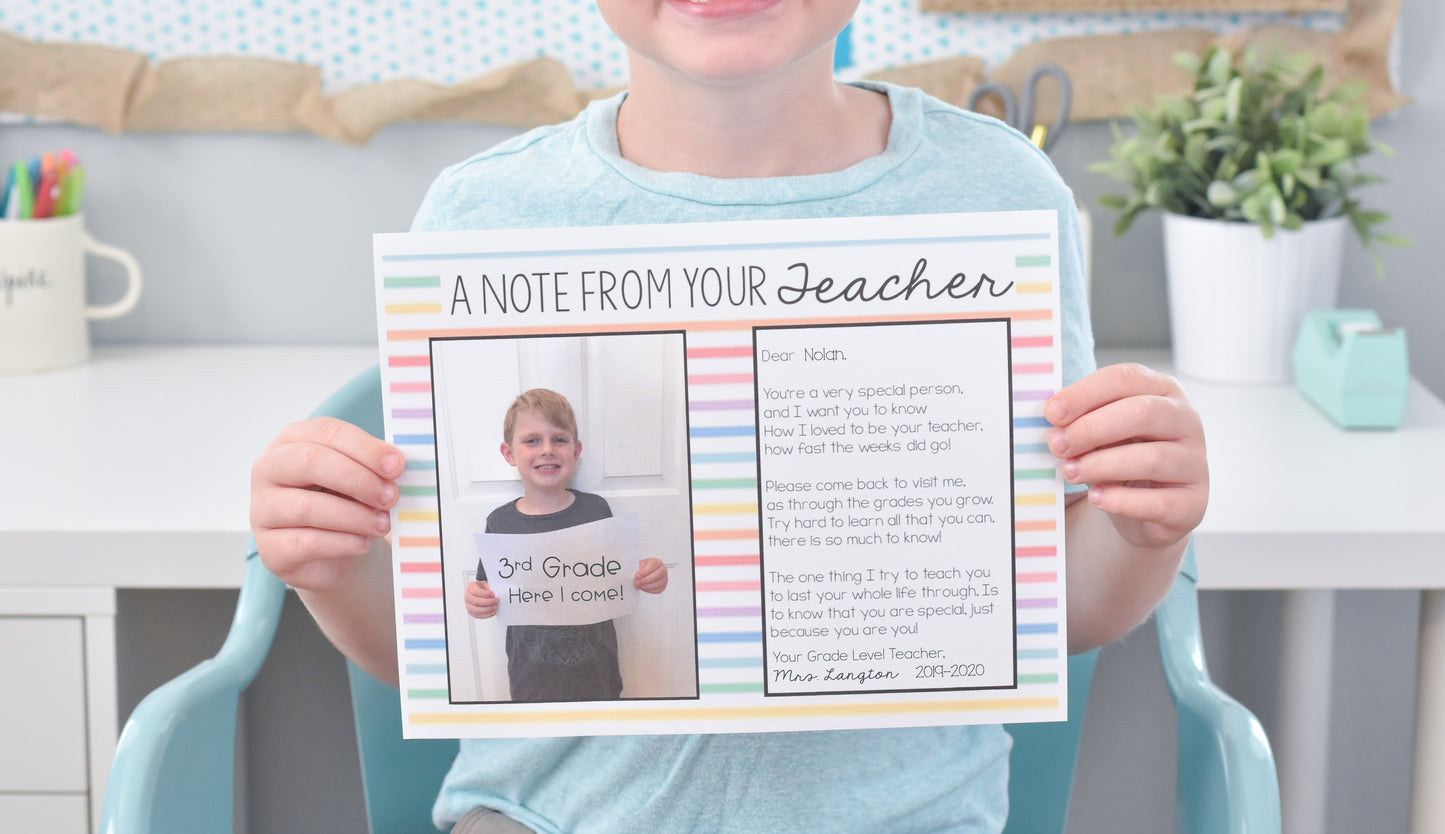 A NOTE FROM YOUR Teacher
3rd Grade
Here I come!
Dear Nolan,
You're a very special person,
and I want you to know
How I loved to be your teacher,
how fast the weeks did go!
Please come back to visit me,
as through the grades you grow.
Try hard to learn all that you can,
there is so much to know!
The one thing I try to teach you
to last your whole life through, Is
to know that you are special, just
because you are you!
Your Grade Level Teacher,
Mrs. Langton 2019-2020